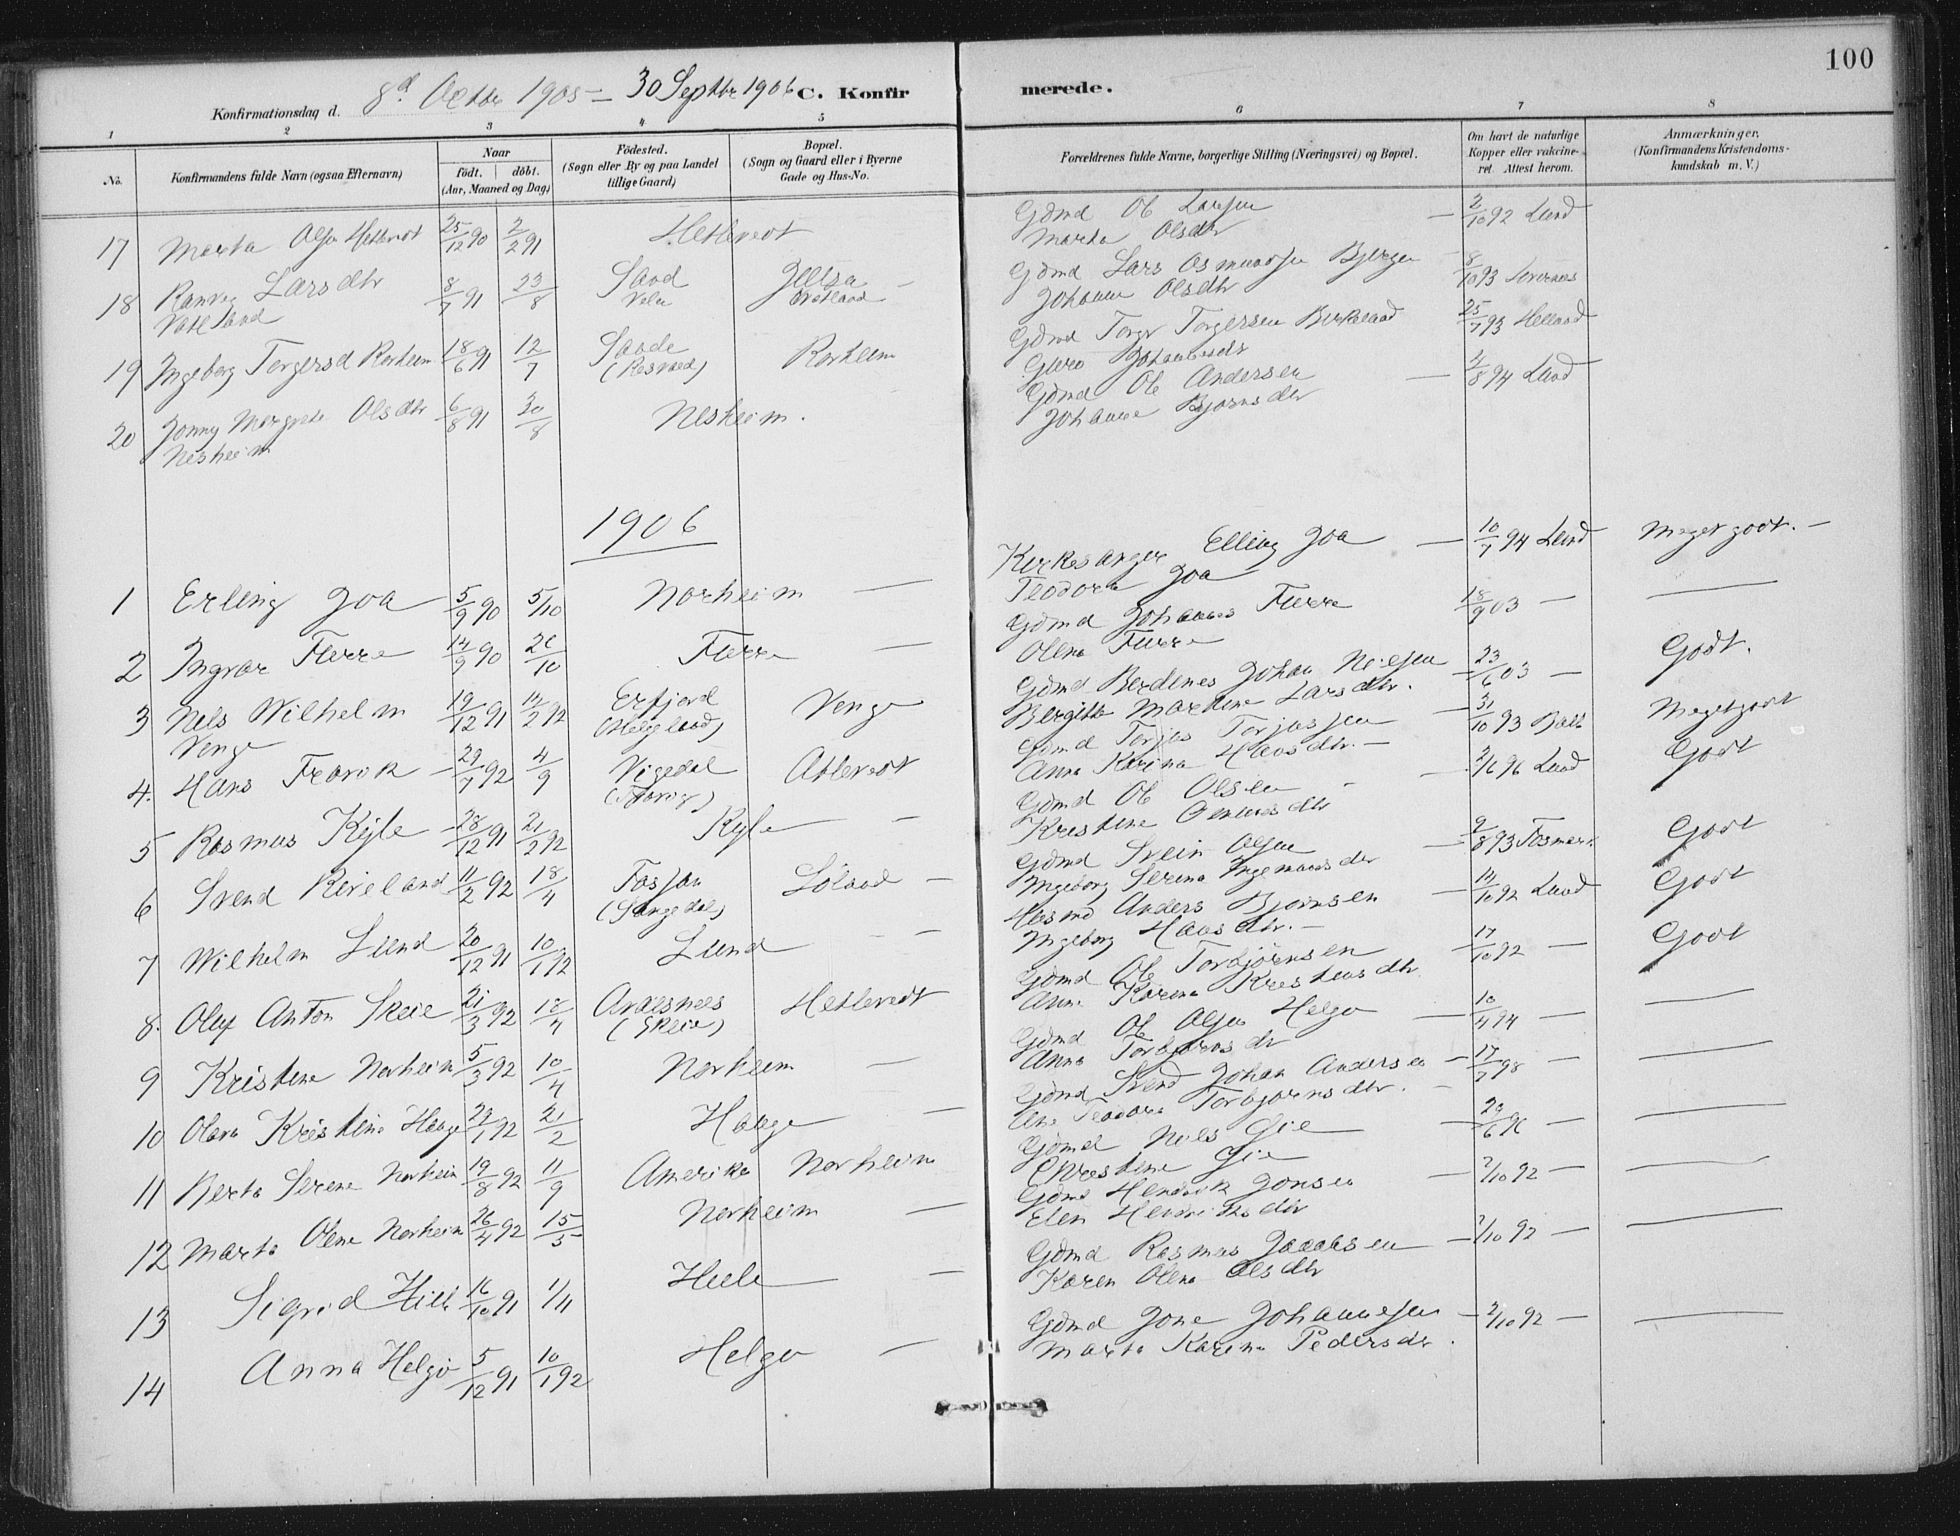 100
Konfirmationsdag d. 8d Octbr 1905 – 30 Septbr 1906 C. Konfirmerede.
1 2 3 4 5 6 7 8
No. Konfirmandens fulde Navn (ogsaa Efternavn) Naar født. døbt. (Aar, Maaned og Dag) Fødested. (Sogn eller By og paa Landet tillige Gaard) Bopæl. (Sogn og Gaard eller i Byerne Gade og Hus-No. Forældrenes fulde Navne, borgerlige Stilling (Næringsvei) og Bopæl. Om havt de naturlige Kopper eller vakcineret. Attest herom. Anmærkninger. (Konfirmandens Kristendomskundskab m. V.)
17 Marta Olsen Hetlevedt 25/12 90 2/2 91 Hetlevedt Gdmd Ol Larsen — 2/10 92 Lund
Marta Olsdtr
18 Ranvei Larsdtr 8/7 91 23/8 Sand Jelsa — Gdmd Lars Osmundsen 8/10 93
Vatland Vatland Johanne Olsdtr
19 Ingeborg Torgersd Rorheim 18/6 91 12/7 Sande Rorheim Gdmd Torger Torgersen Birkeland 25/7 93 Helland
Guro Johannesdtr
20 Jonny Margrete Olsdtr 6/8 91 30/8 Nesheim. Gdmd Ol Andersen — 2/8 94 Lund
Nesheim Johanne Bjørnsdtr
1906
1 Erling Joa 5/9 90 5/10 Norheim — Kirkesanger Elling Joa — 10/7 94 Lund Meget godt. —
Teodora Joa
2 Ingvar Furre 14/9 90 26/10 Furre — Gdmd Johannes Furre 18/9 03 — —
Olena Furre
3 Nels Wilhelm 19/12 91 14/2 92 Erfjord Venge Gdmd Berdenes Johan Nielsen — 23/6 03 — Godt.
Venge (Helgeland) Bergitte Martine Larsdtr.
4. Hans Frøvik — 29/7 92 4/9 Vigedal Atlevedt Gdmd Torjus Torjussen — 31/10 93 Meget godt
Anna Karina Hansdtr. —
5 Rasmus Kyle — 28/12 91 21/2 92 Kyle — Gdmd Ol Olsen — 2/6 96 Lund Godt
Kristine
6 Svend Rireland 11/2 92 18/4 Fosjan — Gdmd Svein Olsen — 2/8 93 Godt
Ingeborg Serina Ingemansdtr
7 Wilhelm Lund 20/12 91 10/1 92 Lund — — Husmd Anders Bjørnsen — 14/10 92 Lund Godt
Ingeborg Hansdtr. —
8. Oluf Anton Skeie 21/3 92 18/4 Ardesnees Hetlevedt Gdmd Ol Torbjørnsen — 17/10 92 — Godt
(Skeie) Anne Karina Kristensdtr
9 Kristine Norheim 5/3 92 10/4 Norheim — Gdmd Ol Olsen Helgø — 10/4 94 — —
Anna Torbjørnsdtr
10 Olava Kristine Hauge 29/1 92 21/2 Hauge — Gdmd Svend Johan Andersen — 17/7 98 — —
Ane Teodora Torbjørnsdtr. —
11 Berta Serene Norheim 19/8 92 11/9 Amerika Norheim Gdmd Nels Øie — 29/6 96 — —
Christine Øie
12 Marta Olene Norheim 26/4 92 15/5 Norheim — Gdmd Hendrik Jonsen — 2/10 92 — —
Elen Henriksdtr
13 Sigrid Hille 16/10 91 1/11 Hille — Gdmd Rasmus Jacobsen — 2/10 92 — —
Karen Olena Olsdtr
14 Anna Helgø 5/12 91 10/1 92 Helgø — Gdmd Jone Johannesen — 2/10 92 — —
Marta Karina Pedersdtr.